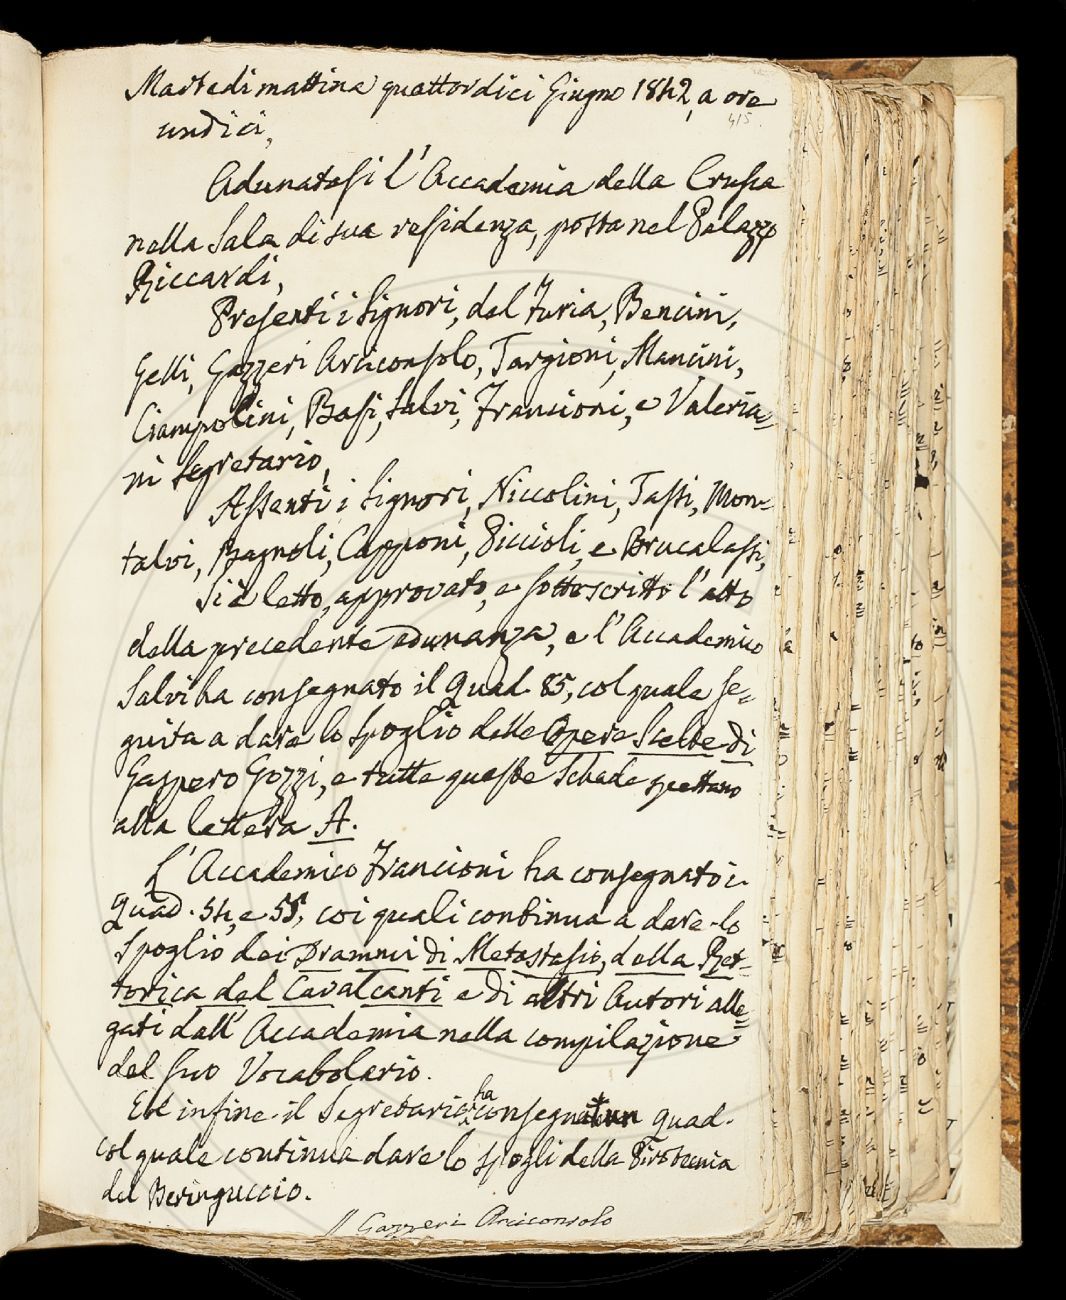 Martedi mattina quattordici Giugno 1842, a ore
415.
undici,
Adunatasi l'Accademia della Crusca
nella Sala di sua residenza, posta nel Palazzo
Riccardi,
Presenti i Signori, del Furia, Bencini,
Gelli, Gazzeri Arciconsolo, Targioni, Mancini,
Ciampolini, Basi, Salvi, Francioni, e Valeria=
ni Segretario,
Assenti i Signori, Niccolini, Tassi, Mon=
talvi, Bagnoli, Capponi, Piccioli, e Brucalassi,
Si è letto, approvato, e sottoscritto l'atto
della precedente adunanza, e l'Accademico
Salvi ha consegnato il Quad. 85, col quale se=
guita a dare lo spoglio delle Opere Scelte di
Gaspero Gozzi, e tutte queste Schede spettano
alla lettera A.
L'Accademico Francioni ha consegnato i
Quad. 54, e 55, coi quali continua a dare lo
Spoglio dei Drammi di Metastasio, della Ret=
torica del Cavalcanti e di altri Autori alle=
gati dall'Accademia nella compilazione
del suo Vocabolario.
Ed infine il Segretario ha consegnato un Quad.
col quale continua dare lo spogli della Pirotecnia
del Beringuccio.
Gazzeri Arciconsolo